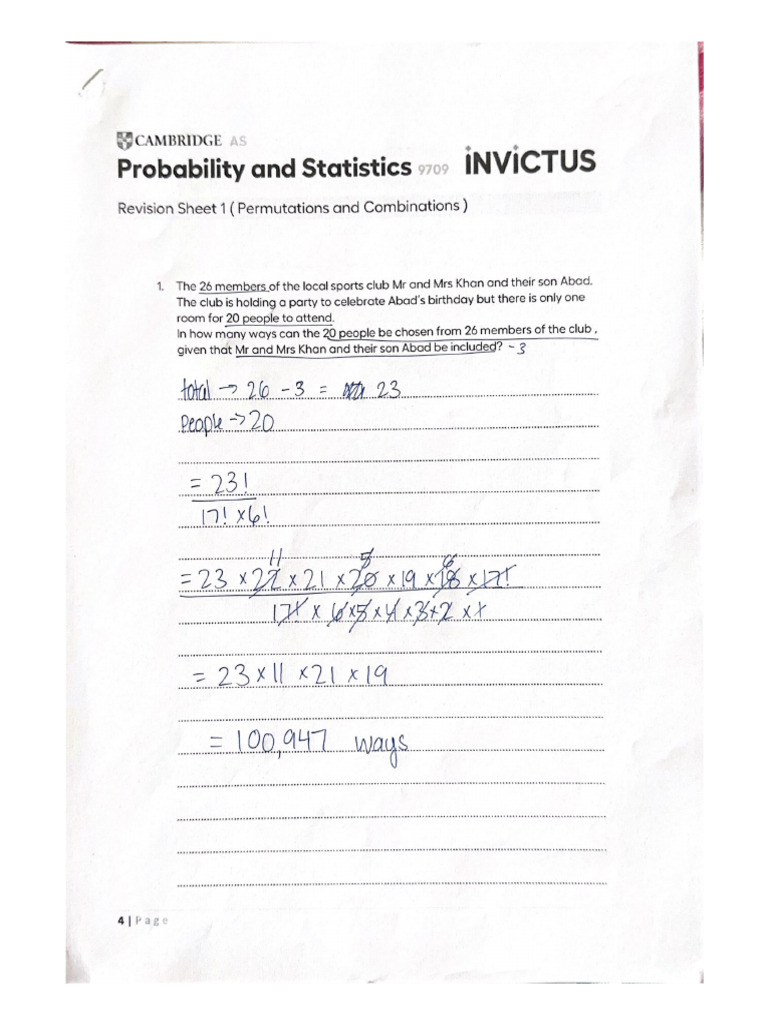 CAMBRIDGE AS
Probability and Statistics 9709 iNViCTUS
Revision Sheet 1 ( Permutations and Combinations )
1. The 26 members of the local sports club Mr and Mrs Khan and their son Abad.
The club is holding a party to celebrate Abad's birthday but there is only one
room for 20 people to attend.
In how many ways can the 20 people be chosen from 26 members of the club ,
given that Mr and Mrs Khan and their son Abad be included? - 3
total → 26 - 3 = 23
people → 20
= 23!
17! × 6!
11 5 6
= 23 × 22 × 21 × 20 × 19 × 18 × 17!
17! × 6 × 5 × 4 × 3 × 2 × 1
= 23 × 11 × 21 × 19
= 100,947 ways
4 | Page